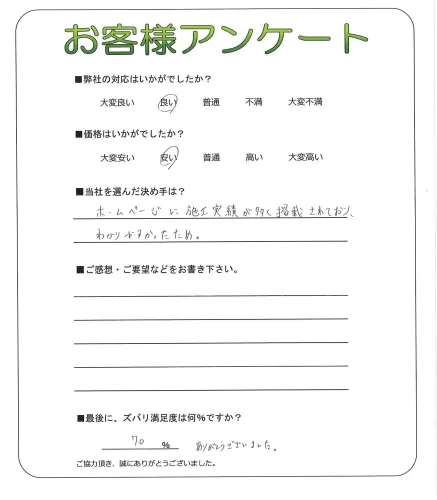 お客様アンケート
■弊社の対応はいかがでしたか？
大変良い 良い 普通 不満 大変不満
■価格はいかがでしたか？
大変安い 安い 普通 高い 大変高い
■当社を選んだ決め手は？
ホームページに施工実績が多く掲載されており、
わかりやすかったため。
■ご感想・ご要望などをお書き下さい。
■最後に、ズバリ満足度は何%ですか？
70 % ありがとうございました。
ご協力頂き、誠にありがとうございました。